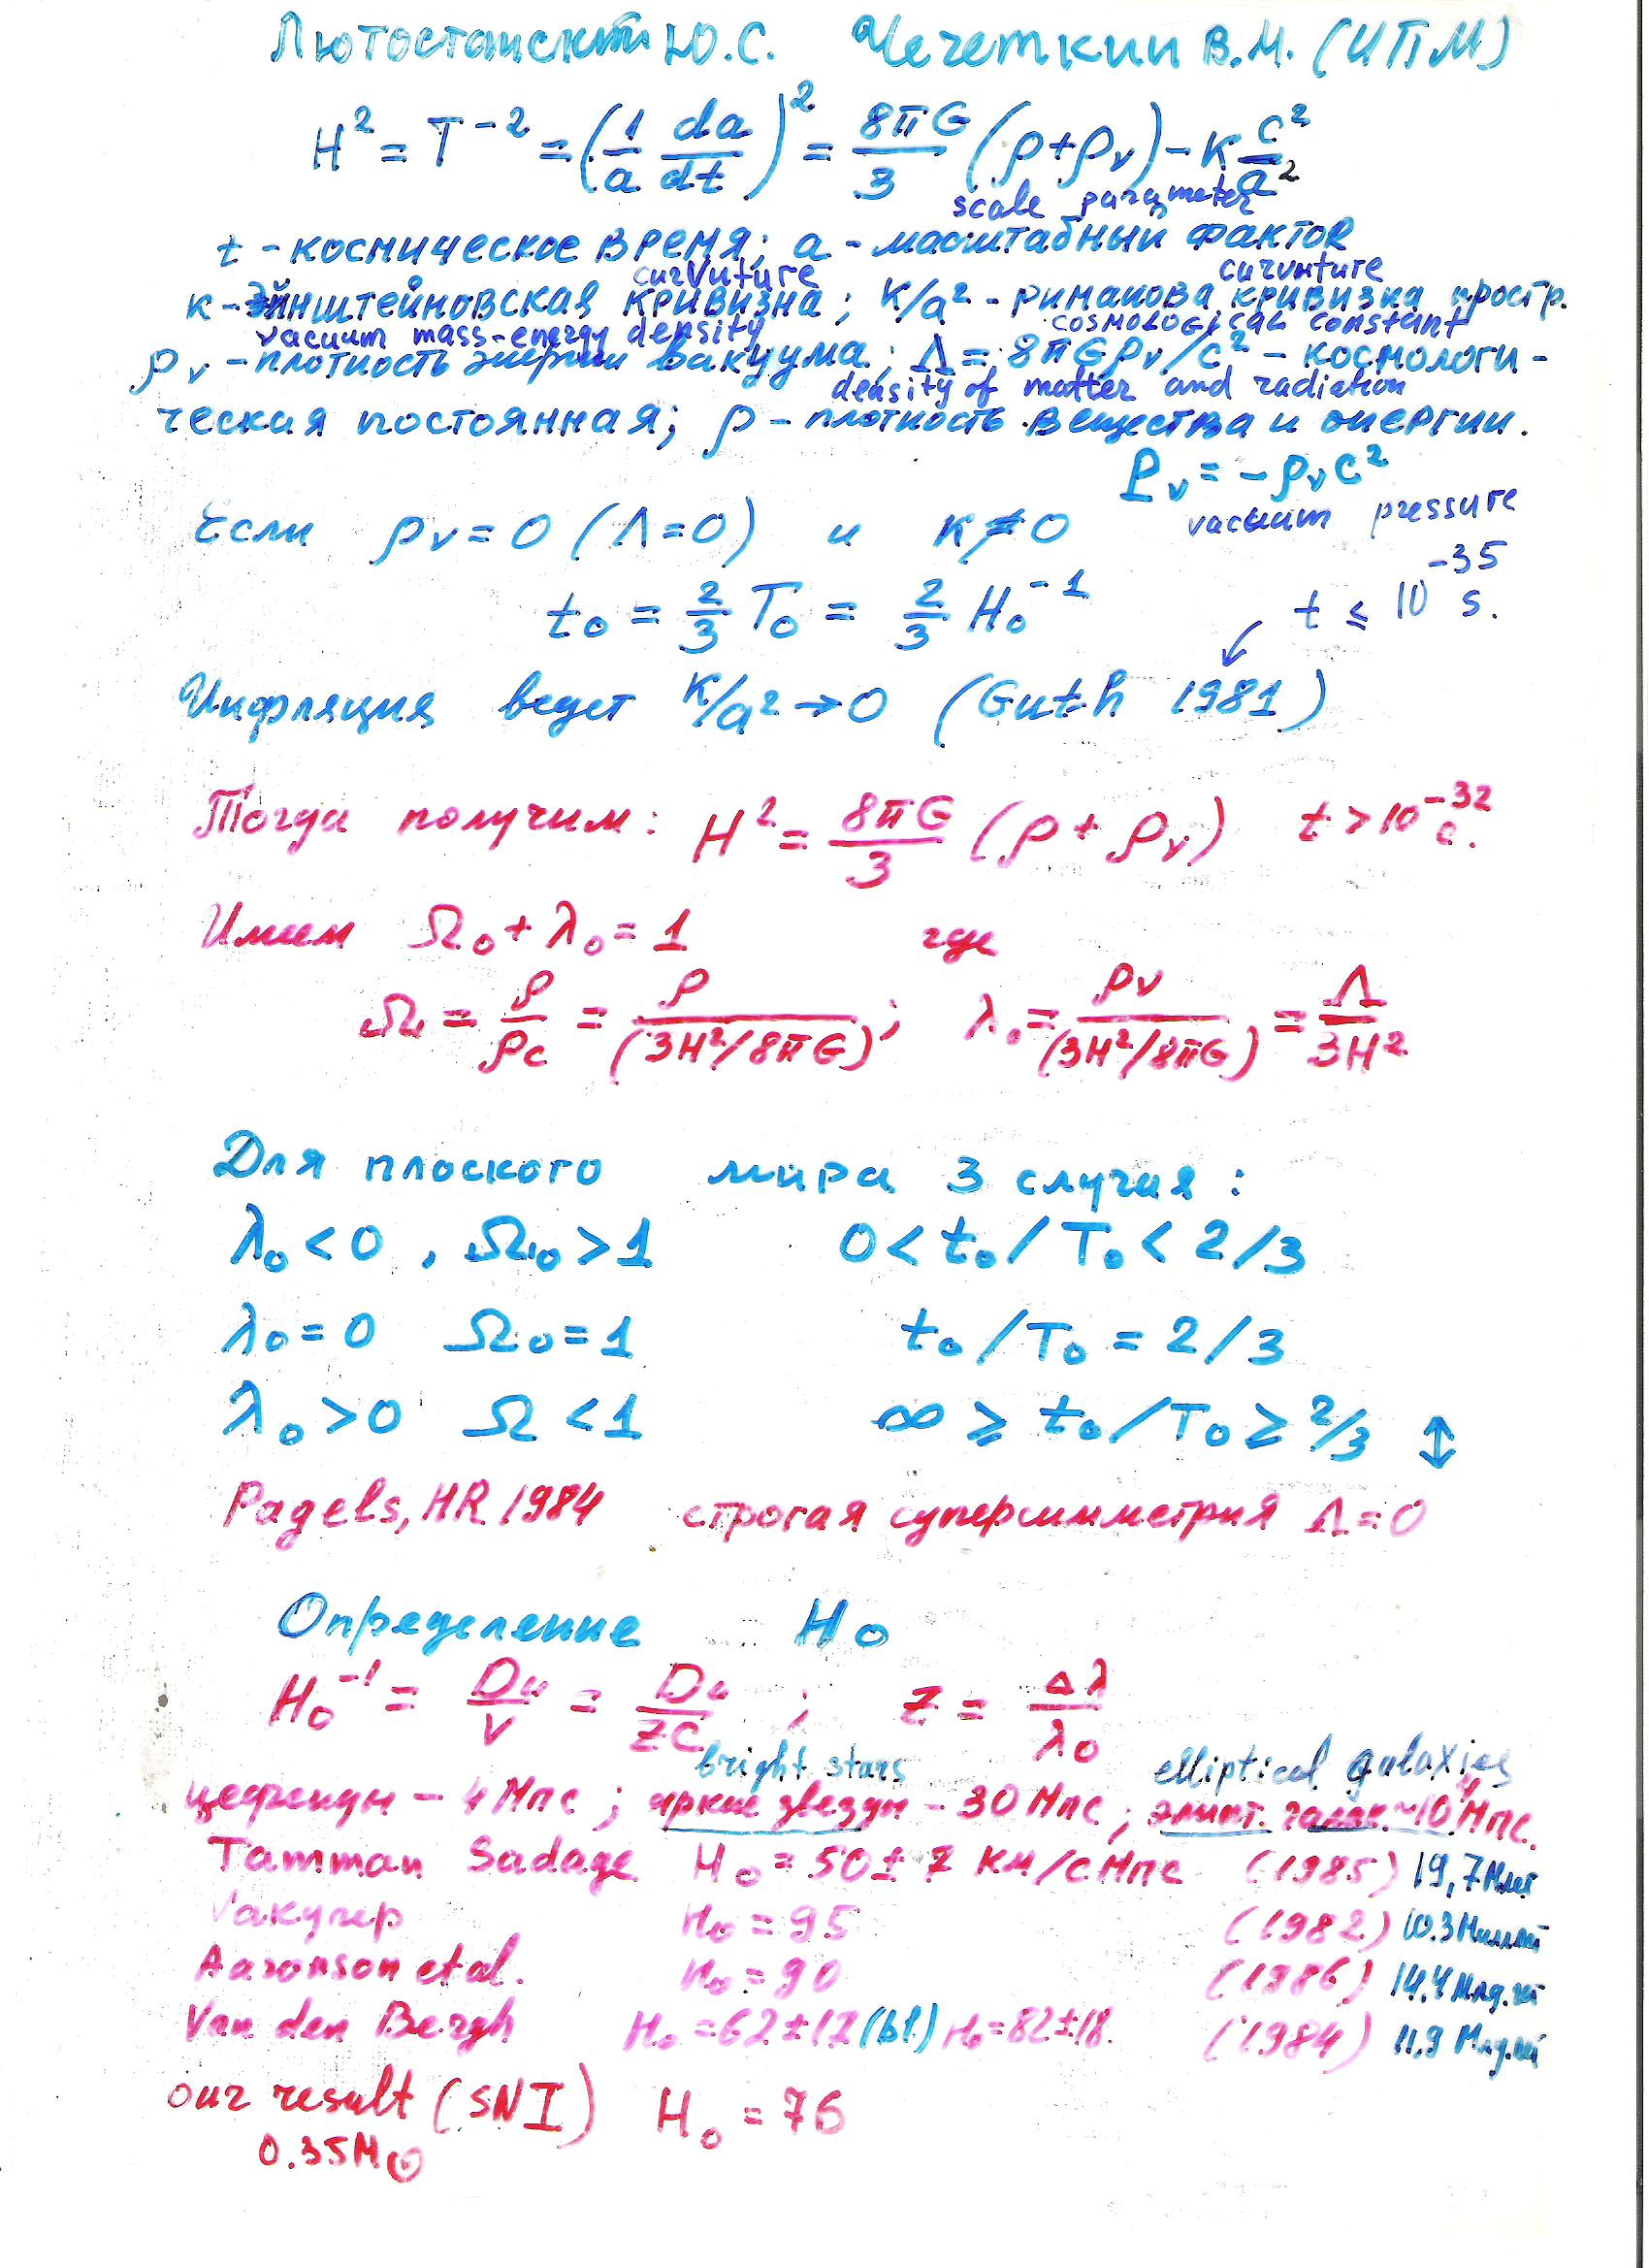 Лютостанский Ю.С. Чечеткин В.М. (ИПМ)
H² = T⁻² = (1/a da/dt)² = 8πG/3 (ρ+ρᵥ) - K c²/a²
scale parameter
t - космическое время; a - масштабный фактоR
curvuture curvuture
к - Эйнштейновская кривизна; K/a² - риманова кривизна простр.
vacuum mass-energy density cosmological constant
ρᵥ - плотность энергии вакуума; Λ = 8πGρᵥ/c² - космологи-
density of matter and radiation
ческая постоянная; ρ - плотность вещества и энергии.
Pᵥ = -ρᵥc²
vacuum pressure
Если ρᵥ = 0 (Λ=0) и K≠0
t₀ = 2/3 T₀ = 2/3 H₀⁻¹ t ≤ 10⁻³⁵ s.
Инфляция ведет K/a² → 0 (Guth 1981)
Тогда получим: H² = 8πG/3 (ρ + ρᵥ) t > 10⁻³² c.
Имеем Ω₀ + λ₀ = 1 где
Ω = ρ/ρc = ρ/(3H²/8πG); λ₀ = ρᵥ/(3H²/8πG) = Λ/3H²
Для плоского мира 3 случая:
λ₀ < 0, Ω₀ > 1 0 < t₀/T₀ < 2/3
λ₀ = 0 Ω₀ = 1 t₀/T₀ = 2/3
λ₀ > 0 Ω < 1 ∞ ≥ t₀/T₀ ≥ 2/3 ↕
Pagels, HR 1984 строгая суперсимметрия Λ = 0
Определение H₀
H₀⁻¹ = Du/V = Du/ZC ; Z = Δλ/λ₀
bright stars elliptical galaxies
цефеиды - 4 Мпс; яркие звезды - 30 Мпс; элипт. галак. ~10⁴ Мпс.
Tamman Sadage H₀ = 50 ± 7 км/с Мпс (1985) 19,7 Млет
Vакулер H₀ = 95 (1982) 10.3 Миллет
Aaronson et al. H₀ = 90 (1986) 14,4 Млд.лет
Van den Bergh H₀ = 62 ± 12 (bl.) H₀ = 82 ± 18. (1984) 11,9 Млд.лет
our result (SNI) H₀ = 76
0.35M☉